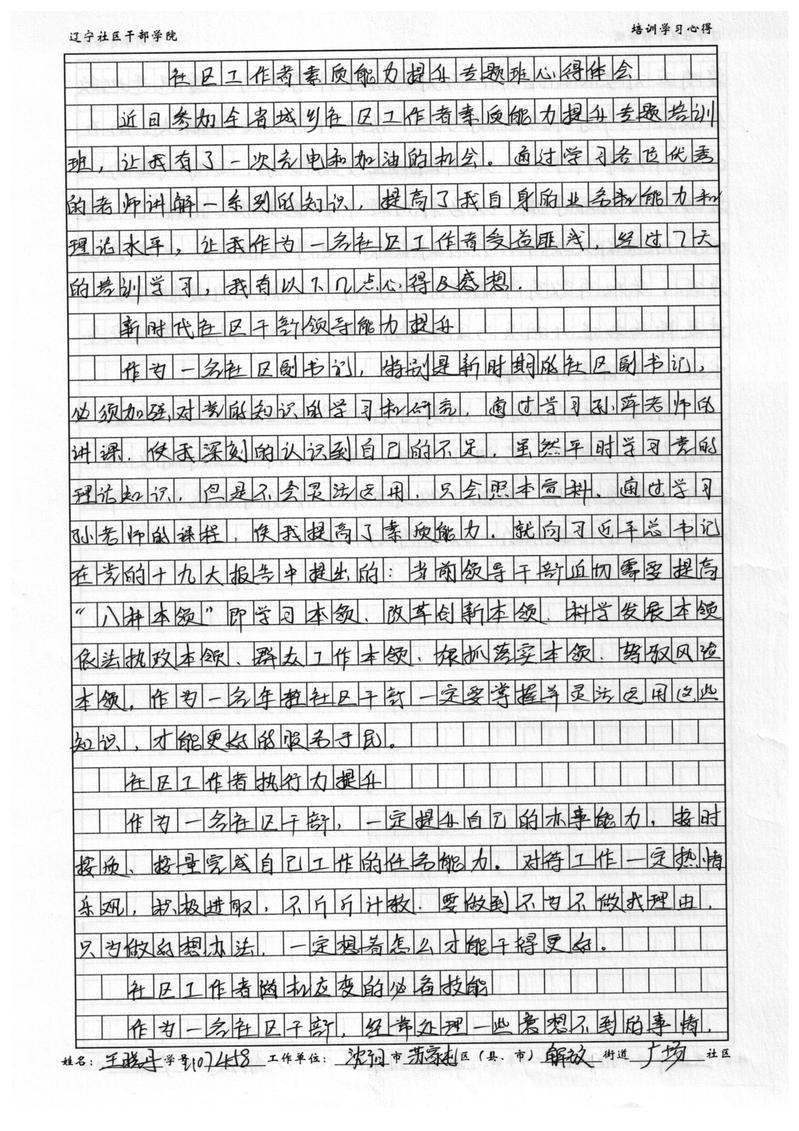 辽宁社区干部学院 培训学习心得
社区工作者素质能力提升专题班心得体会
近日参加全省城乡社区工作者素质能力提升专题培训
班，让我有了一次充电和加油的机会。通过学习各位优秀
的老师讲解一系列的知识，提高了我自身的业务和能力和
理论水平，让我作为一名社区工作者受益匪浅，经过7天
的培训学习，我有以下几点心得及感想.
新时代社区干部领导能力提升
作为一名社区副书记，特别是新时期的社区副书记，
必须加强对党的知识的学习和研究，通过学习孙萍老师的
讲课，使我深刻的认识到自己的不足，虽然平时学习党的
理论知识，但是不会灵活运用，只会照本宣科，通过学习
孙老师的课程，使我提高了素质能力。就向习近平总书记
在党的十九大报告中提出的：当前领导干部迫切需要提高
“八种本领”即学习本领、改革创新本领、科学发展本领
依法执政本领、群众工作本领、狠抓落实本领、驾驭风险
本领，作为一名年轻社区干部一定要掌握并灵活运用这些
知识，才能更好的服务于民。
社区工作者执行力提升
作为一名社区干部，一定提升自己的办事能力，按时
按质、按量完成自己工作的任务能力。对待工作一定热情
乐观，积极进取，不斤斤计较，要做到不为不做找理由，
只为做好想办法，一定想着怎么才能干得更好。
社区工作者随机应变的必备技能
作为一名社区干部，经常处理一些意想不到的事情，
姓名： 学号 2107458 工作单位： 沈阳 市 苏家屯 区（县、市） 解放 街道 广场 社区